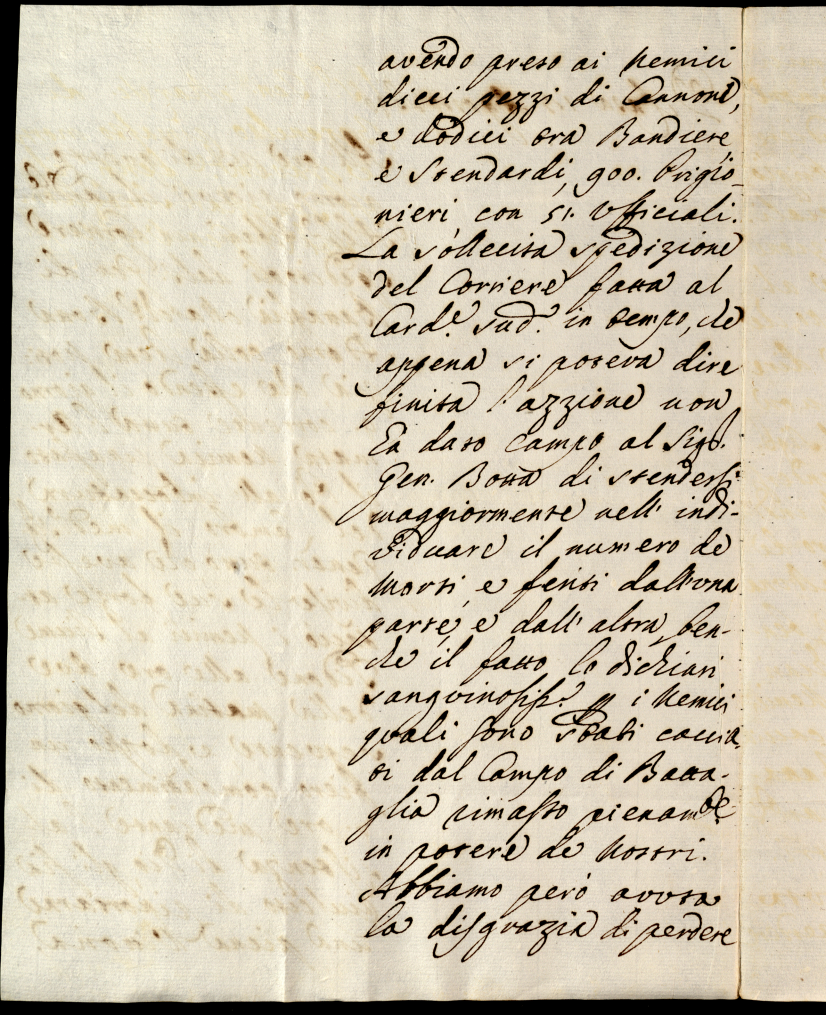 avendo preso ai Nemici
dieci pezzi di Cannone,
e dodici tra Bandiere,
e Stendardi, 900. Prigio-
nieri con 51. Vfficiali.
La sollecita spedizione
del Corriere fatta al
Card.e sud.o in tempo, che
appena si poteva dire
finita l'azzione non
ha dato campo al Sig.r
Gen. Botta di stendersi
maggiormente nell' indi-
viduare il numero de
Morti, e feriti dall'vna
parte, e dall' altra, ben-
che il fatto lo dichiari
sanguinosiss.o p i Nemici
quali sono stati caccia-
ti dal Campo di Batta-
glia rimasto pienam.te
in potere de Nostri.
Abbiamo però avuta
la disgrazia di perdere